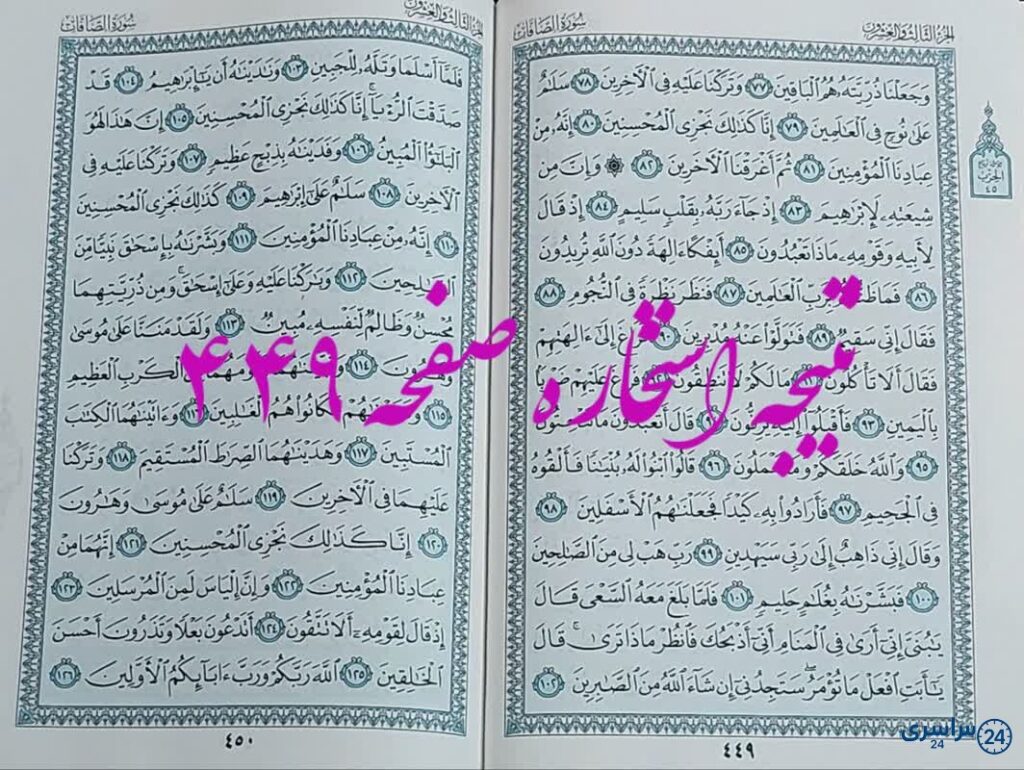 الجزء الثالث والعشرون
سورة الصافات
وَجَعَلْنَا ذُرِّيَّتَهُ هُمُ الْبَاقِينَ ٧٧ وَتَرَكْنَا عَلَيْهِ فِي الْآخِرِينَ ٧٨ سَلَامٌ
عَلَىٰ نُوحٍ فِي الْعَالَمِينَ ٧٩ إِنَّا كَذَٰلِكَ نَجْزِي الْمُحْسِنِينَ ٨٠ إِنَّهُ مِنْ
عِبَادِنَا الْمُؤْمِنِينَ ٨١ ثُمَّ أَغْرَقْنَا الْآخَرِينَ ٨٢ ۞ وَإِنَّ مِن
شِيعَتِهِ لَإِبْرَاهِيمَ ٨٣ إِذْ جَاءَ رَبَّهُ بِقَلْبٍ سَلِيمٍ ٨٤ إِذْ قَالَ
لِأَبِيهِ وَقَوْمِهِ مَاذَا تَعْبُدُونَ ٨٥ أَئِفْكًا آلِهَةً دُونَ اللَّهِ تُرِيدُونَ
٨٦ بِرَبِّ الْعَالَمِينَ ٨٧ فَنَظَرَ نَظْرَةً فِي النُّجُومِ ٨٨
فَقَالَ إِنِّي سَقِيمٌ ٨٩ فَتَوَلَّوْا عَنْهُ مُدْبِرِينَ ٩٠ إِلَىٰ آلِهَتِهِمْ
فَقَالَ أَلَا تَأْكُلُونَ مَا لَكُمْ لَا تَنطِقُونَ فَرَاغَ عَلَيْهِمْ ضَرْبًا
بِالْيَمِينِ ٩٣ فَأَقْبَلُوا إِلَيْهِ يَزِفُّونَ قَالَ أَتَعْبُدُونَ مَا تَنْحِتُونَ
٩٥ وَاللَّهُ خَلَقَكُمْ وَمَا تَعْمَلُونَ ٩٦ قَالُوا ابْنُوا لَهُ بُنْيَانًا فَأَلْقُوهُ
فِي الْجَحِيمِ ٩٧ فَأَرَادُوا بِهِ كَيْدًا فَجَعَلْنَاهُمُ الْأَسْفَلِينَ ٩٨
وَقَالَ إِنِّي ذَاهِبٌ إِلَىٰ رَبِّي سَيَهْدِينِ ٩٩ رَبِّ هَبْ لِي مِنَ الصَّالِحِينَ
١٠٠ فَبَشَّرْنَاهُ بِغُلَامٍ حَلِيمٍ ١٠١ فَلَمَّا بَلَغَ مَعَهُ السَّعْيَ قَالَ
يَا بُنَيَّ إِنِّي أَرَىٰ فِي الْمَنَامِ أَنِّي أَذْبَحُكَ فَانظُرْ مَاذَا تَرَىٰ ۚ قَالَ
يَا أَبَتِ افْعَلْ مَا تُؤْمَرُ ۖ سَتَجِدُنِي إِن شَاءَ اللَّهُ مِنَ الصَّابِرِينَ ١٠٢
٤٤٩
الحزب
٤٥
الجزء الثالث والعشرون
سورة الصافات
فَلَمَّا أَسْلَمَا وَتَلَّهُ لِلْجَبِينِ ١٠٣ وَنَادَيْنَاهُ أَن يَا إِبْرَاهِيمُ ١٠٤ قَدْ
صَدَّقْتَ الرُّؤْيَا ۚ إِنَّا كَذَٰلِكَ نَجْزِي الْمُحْسِنِينَ ١٠٥ إِنَّ هَٰذَا لَهُوَ
الْبَلَاءُ الْمُبِينُ ١٠٦ وَفَدَيْنَاهُ بِذِبْحٍ عَظِيمٍ ١٠٧ وَتَرَكْنَا عَلَيْهِ فِي
الْآخِرِينَ ١٠٨ سَلَامٌ عَلَىٰ إِبْرَاهِيمَ ١٠٩ كَذَٰلِكَ نَجْزِي الْمُحْسِنِينَ
١١٠ إِنَّهُ مِنْ عِبَادِنَا الْمُؤْمِنِينَ ١١١ وَبَشَّرْنَاهُ بِإِسْحَاقَ نَبِيًّا مِّنَ
الصَّالِحِينَ ١١٢ وَبَارَكْنَا عَلَيْهِ وَعَلَىٰ إِسْحَاقَ ۚ وَمِن ذُرِّيَّتِهِمَا
مُحْسِنٌ وَظَالِمٌ لِّنَفْسِهِ مُبِينٌ ١١٣ وَلَقَدْ مَنَنَّا عَلَىٰ مُوسَىٰ
وَهَارُونَ ١١٤ وَنَجَّيْنَاهُمَا وَقَوْمَهُمَا مِنَ الْكَرْبِ الْعَظِيمِ
١١٥ وَنَصَرْنَاهُمْ فَكَانُوا هُمُ الْغَالِبِينَ ١١٦ وَآتَيْنَاهُمَا الْكِتَابَ
الْمُسْتَبِينَ ١١٧ وَهَدَيْنَاهُمَا الصِّرَاطَ الْمُسْتَقِيمَ ١١٨ وَتَرَكْنَا
عَلَيْهِمَا فِي الْآخِرِينَ ١١٩ سَلَامٌ عَلَىٰ مُوسَىٰ وَهَارُونَ
١٢٠ إِنَّا كَذَٰلِكَ نَجْزِي الْمُحْسِنِينَ ١٢١ إِنَّهُمَا مِنْ
عِبَادِنَا الْمُؤْمِنِينَ ١٢٢ وَإِنَّ إِلْيَاسَ لَمِنَ الْمُرْسَلِينَ ١٢٣
إِذْ قَالَ لِقَوْمِهِ أَلَا تَتَّقُونَ ١٢٤ أَتَدْعُونَ بَعْلًا وَتَذَرُونَ أَحْسَنَ
الْخَالِقِينَ ١٢٥ اللَّهَ رَبَّكُمْ وَرَبَّ آبَائِكُمُ الْأَوَّلِينَ ١٢٦
٤٥٠
نتیجه استخاره صفحه ۴۴۹
سراسری 24
24